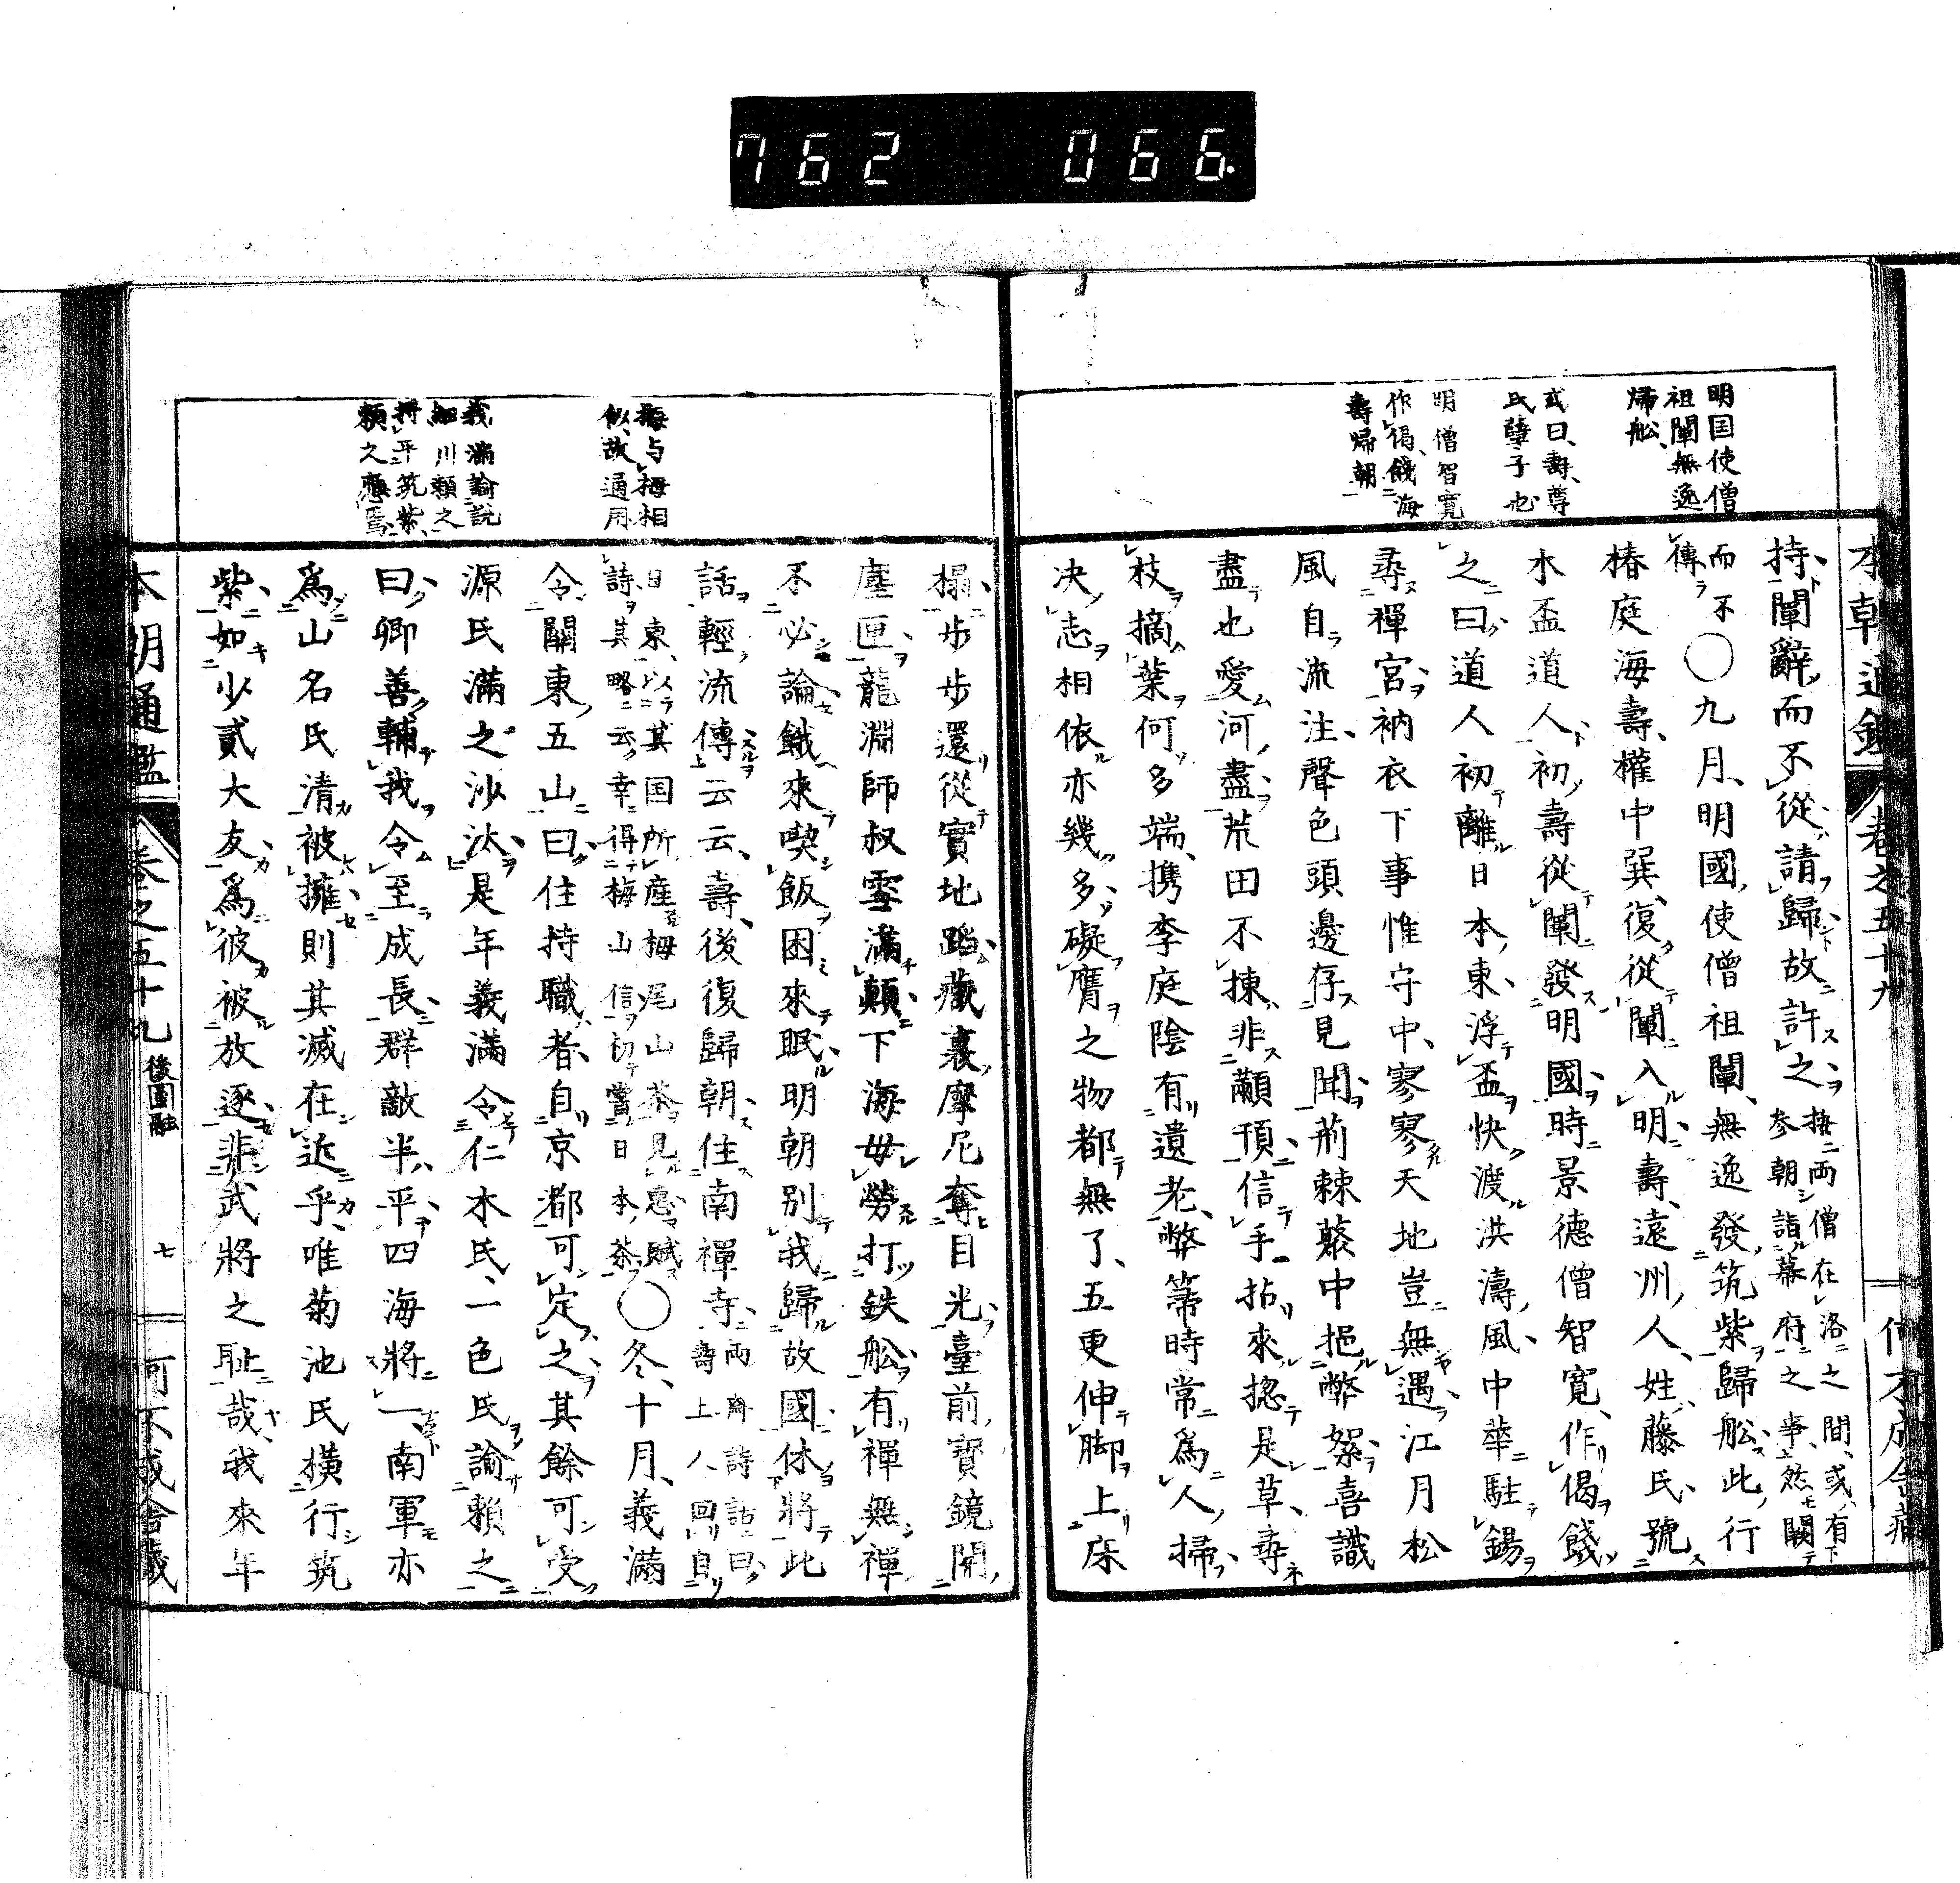 762 066.
本朝通鑑 卷之五十九
明国使僧
祖闡無逸
帰舩、
或曰、壽、尊
氏孽子也
明僧智寛
作偈、餞海
壽帰朝
持闡辭而不從請歸故許之 按両僧在洛之間、或有
参朝詣幕府之事、然闕
而不
傳 ○九月、明國使僧祖闡、無逸發筑紫歸舩、此行
椿庭海壽、權中巽、復從闡入明、壽、遠州人、姓藤氏、號
木盃道人、初壽從闡發明國時景德僧智寛、作偈餞
之曰道人初離日本東、浮盃快渡洪濤風、中華駐錫
尋禪宮、衲衣下事惟守中、寥寥天地豈無遇、江月松
風自流注、聲色頭邊存見聞、荊棘藂中挹弊絮、喜識
盡也愛河盡、荒田不揀非顢頇、信手拈來揔是草、尋
枝摘葉何多端、携李庭陰有遺老、弊箒時常爲人掃、
决志相依亦幾多、礙膺之物都無了、五更伸脚上床
榻、步步還從實地踏、藏裏摩尼奪目光、臺前寶鏡開
塵匣、龍淵師叔雪滿頼、下海毋勞打鉄舩、有禪無禪
不必論、餓來喫飯困來眠、明朝別我歸故國、休將此
話輕流傳云云、壽、後復歸朝、住南禪寺、 兩齋詩話曰、
壽上人回自
日東、以其国所産梅尾山茶見惠、賦
詩、其略云、幸得梅山信、初嘗日本茶 ○冬、十月、義滿
令關東五山曰、住持職者、自京都可定之、其餘可受
源氏滿之沙汰、是年義滿令仁木氏、一色氏諭賴之
曰、卿善輔我、令至成長、群敵半平、四海將一、南軍亦
爲山名氏清被擁則其滅在近乎、唯菊池氏橫行筑
紫、如少貳大友、爲彼被放逐、非武將之耻哉、我來年
梅与栂相
似、故通用
義滿諭説
細川頼之
将平筑紫、
頼之應焉
本朝通鑑 卷之五十九 後圓融 七 何不成舎藏